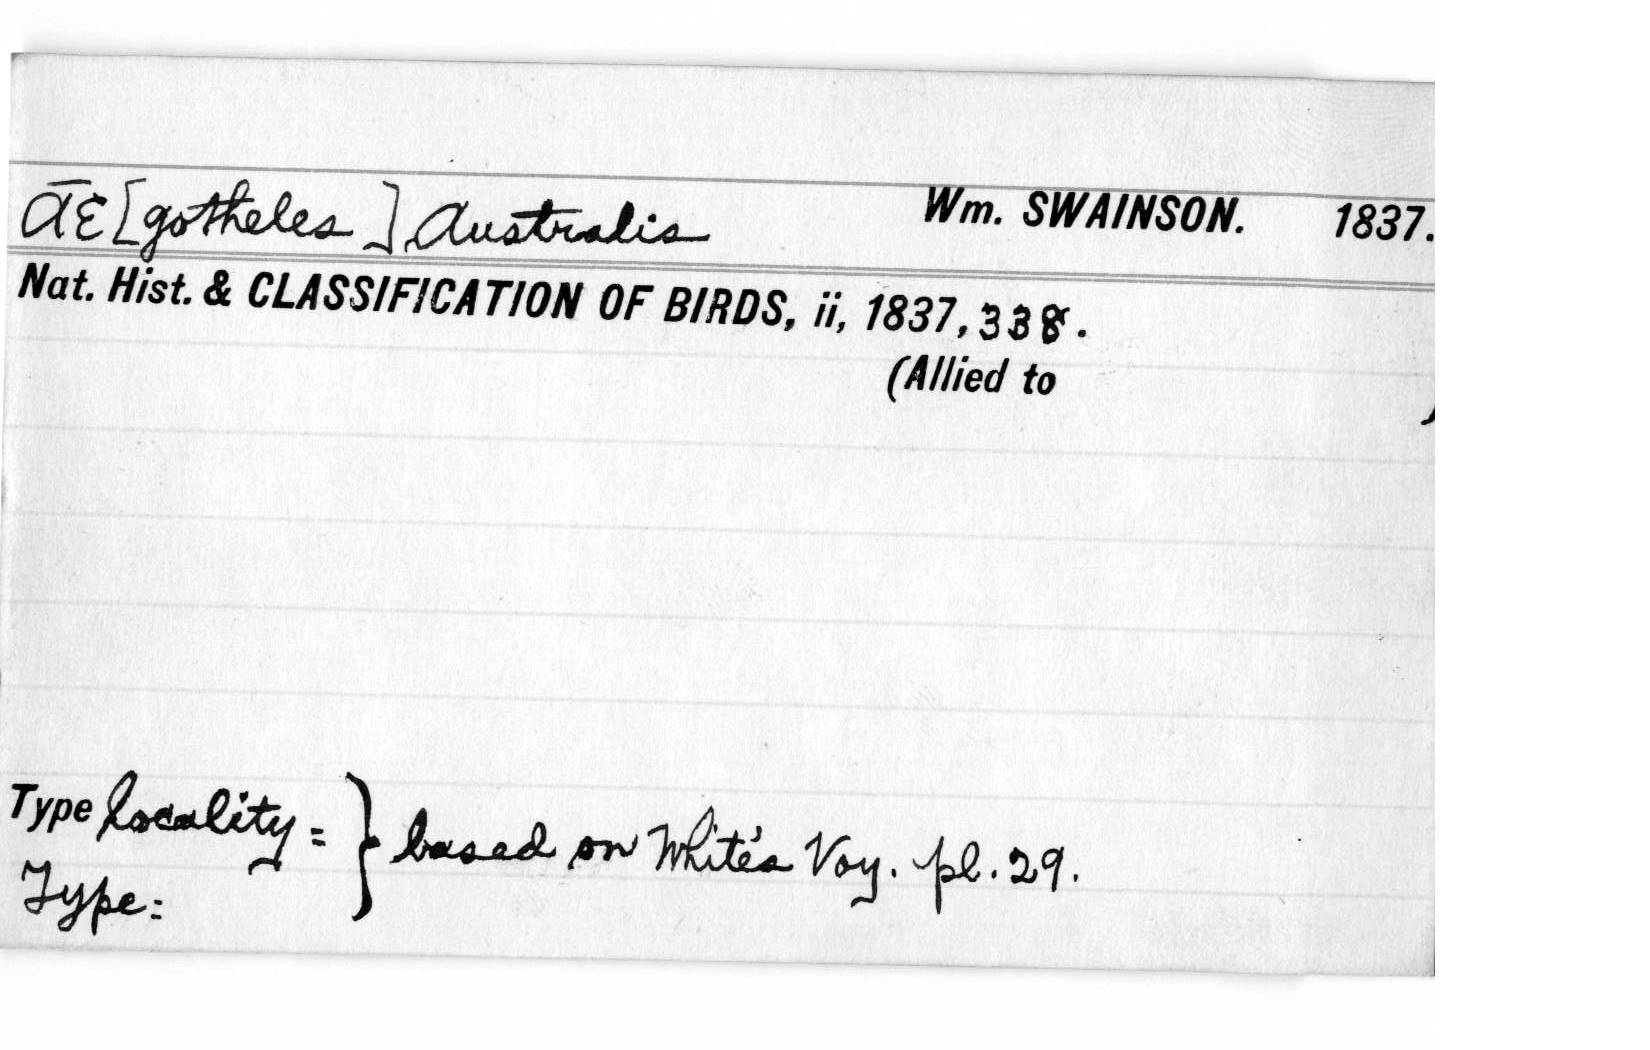 AE[gotheles] Australis Wm. SWAINSON. 1837.
Nat. Hist. & CLASSIFICATION OF BIRDS, ii, 1837, 338.
(Allied to )
Type locality = } based on White's Voy. pl. 29.
Type: